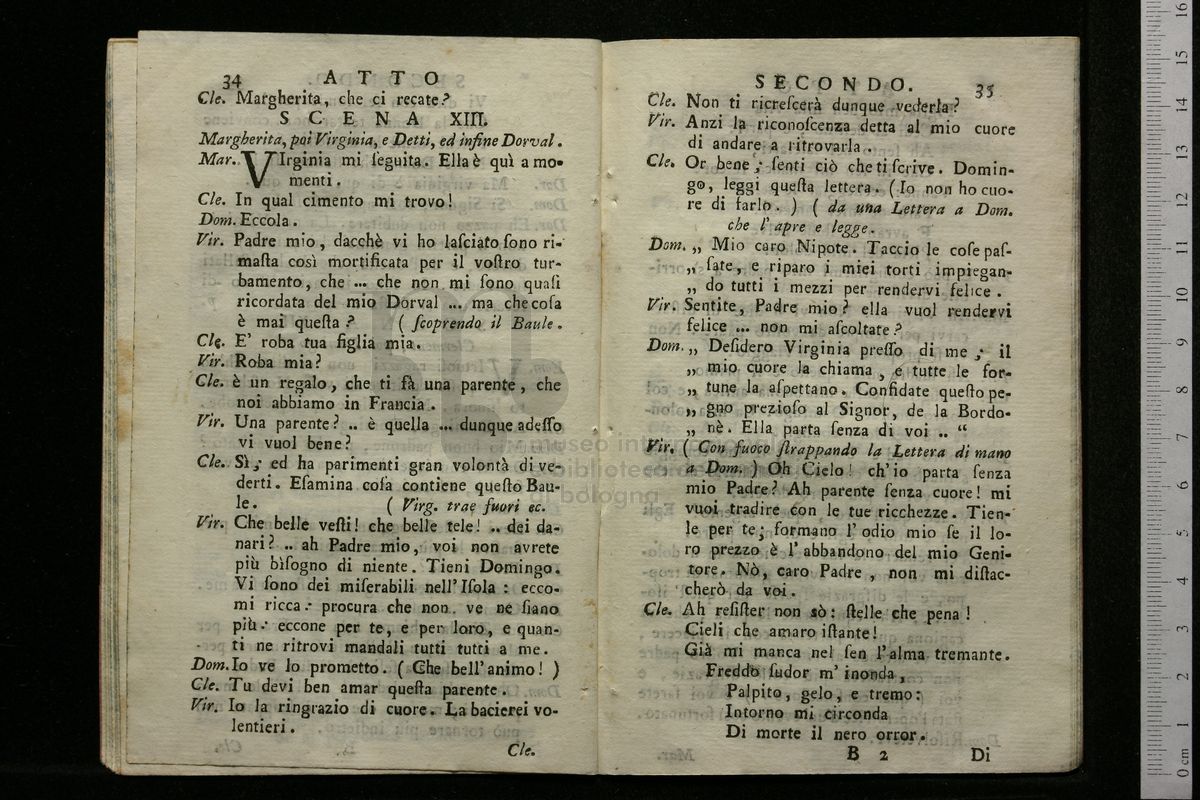 34 ATTO
Cle. Margherita, che ci recate?
SCENA XIII.
Margherita, poi Virginia, e Detti, ed infine Dorval.
Mar. VIrginia mi ſeguita. Ella è quì a mo-
menti.
Cle. In qual cimento mi trovo!
Dom. Eccola.
Vir. Padre mio, dacchè vi ho laſciato ſono ri-
maſta così mortificata per il voſtro tur-
bamento, che ... che non mi ſono quaſi
ricordata del mio Dorval ... ma che coſa
è mai queſta? ( ſcoprendo il Baule.
Cle. E' roba tua figlia mia.
Vir. Roba mia?
Cle. è un regalo, che ti fà una parente, che
noi abbiamo in Francia.
Vir. Una parente? .. è quella ... dunque adeſſo
vi vuol bene?
Cle. Sì; ed ha parimenti gran volontà di ve-
derti. Eſamina coſa contiene queſto Bau-
le. ( Virg. trae fuori ec.
Vir. Che belle veſti! che belle tele! .. dei da-
nari? .. ah Padre mio, voi non avrete
più bìſogno di niente. Tieni Domingo.
Vi ſono dei miſerabili nell' Iſola: ecco-
mi ricca: procura che non ve ne ſiano
più: eccone per te, e per loro, e quan-
ti ne ritrovi mandali tutti tutti a me.
Dom. Io ve lo prometto. ( Che bell' animo! )
Cle. Tu devi ben amar queſta parente.
Vir. Io la ringrazio di cuore. La bacierei vo-
lentieri.
Cle.
SECONDO. 35
Cle. Non ti ricreſcerà dunque vederla?
Vir. Anzi la riconoſcenza detta al mio cuore
di andare a ritrovarla.
Cle. Or bene; ſenti ciò che ti ſcrive. Domin-
go, leggi queſta lettera. ( Io non ho cuo-
re di farlo. ) ( da una Lettera a Dom.
che l' apre e legge.
Dom. „ Mio caro Nipote. Taccio le coſe paſ-
„ ſate, e riparo i miei torti impiegan-
„ do tutti i mezzi per rendervi felice.
Vir. Sentite, Padre mio? ella vuol rendervi
felice ... non mi aſcoltate?
Dom. „ Deſidero Virginia preſſo di me; il
„ mio cuore la chiama, e tutte le for-
„ tune la aſpettano. Confidate queſto pe-
„ gno prezioſo al Signor, de la Bordo-
„ nè. Ella parta ſenza di voi .. “
Vir. ( Con fuoco ſtrappando la Lettera di mano
a Dom. ) Oh Cielo! ch' io parta ſenza
mio Padre? Ah parente ſenza cuore! mi
vuoi tradire con le tue ricchezze. Tien-
le per te; formano l' odio mio ſe il lo-
ro prezzo è l' abbandono del mio Geni-
tore. Nò, caro Padre, non mi diſtac-
cherò da voi.
Cle. Ah reſiſter non sò: ſtelle che pena!
Cieli che amaro iſtante!
Già mi manca nel ſen l' alma tremante.
Freddo ſudor m' inonda,
Palpito, gelo, e tremo:
Intorno mi circonda
Di morte il nero orror.
B 2 Di
museo internazionale
biblioteca della musica
di bologna
0 cm 1 2 3 4 5 6 7 8 9 10 11 12 13 14 15 16